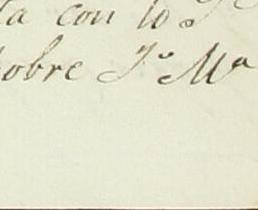 ta con lo
obre J.º M.ª